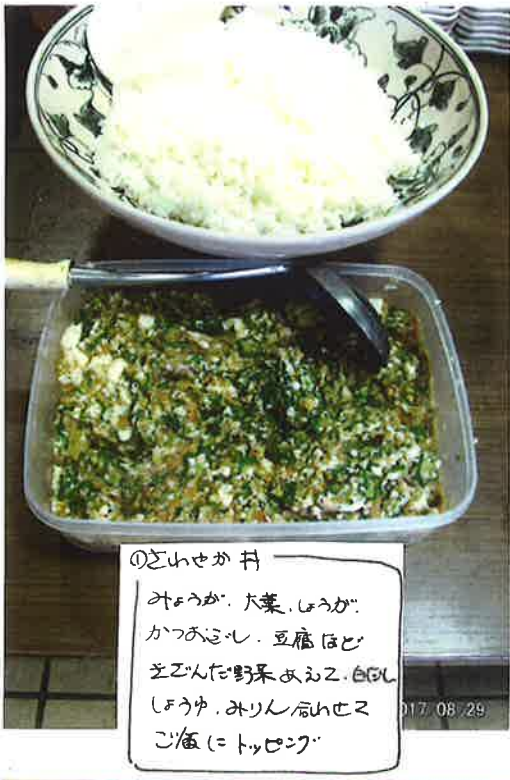 ①さわやか丼
みょうが、大葉、しょうが、
かつおぶし、豆腐など
きざんだ野菜あえて、白だし
しょうゆ、みりん合わせて
ご飯にトッピング
017 08 29